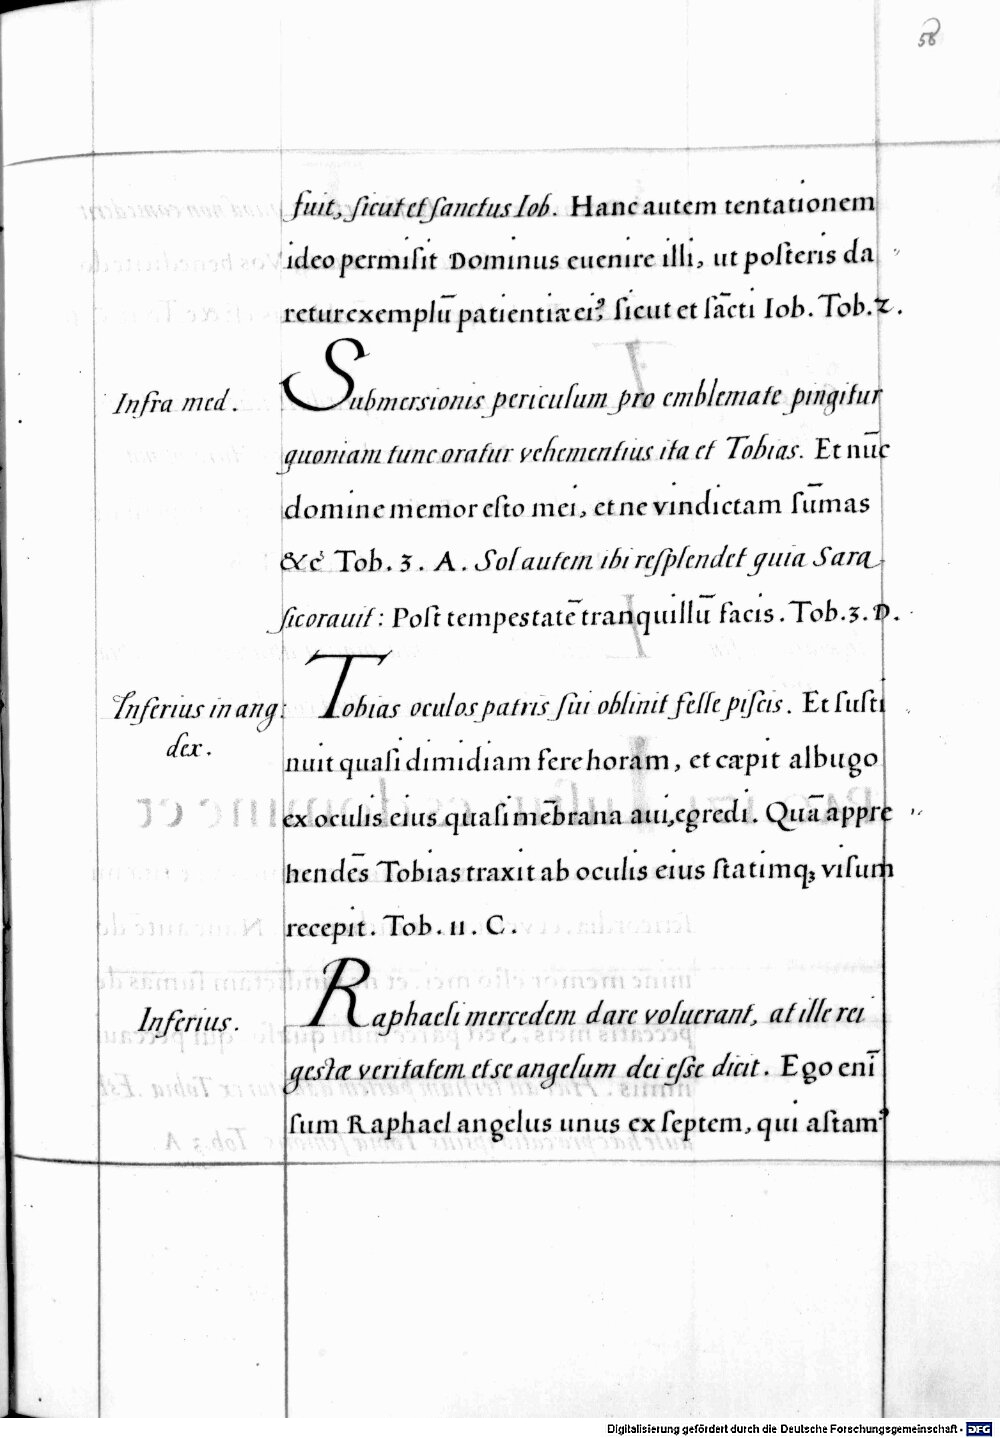 58
fuit, sicut et sanctus Iob. Hanc autem tentationem
ideo permisit Dominus euenire illi, ut posteris da
retur exemplū patientiæ eiꝰ, sicut et sācti Iob. Tob. 2.
Infra med. Submersionis periculum pro emblemate pingitur
quoniam tunc oratur vehementius ita et Tobias. Et nūc
domine memor esto mei, et ne vindictam sūmas
&c̀ Tob. 3. A. Sol autem ibi resplendet quia Sara
sic orauit: Post tempestatē tranquillū facis. Tob. 3. D.
Inferius in ang: Tobias oculos patris sui oblinit felle piscis. Et susti
dex. nuit quasi dimidiam fere horam, et cæpit albugo
ex oculis eius quasi mēbrana aui, egredi. Quā appre
hendēs Tobias traxit ab oculis eius statimq; visum
recepit. Tob. 11. C.
Inferius. Raphaeli mercedem dare voluerant, at ille rei
gestæ veritatem et se angelum dei esse dicit. Ego eni̅
sum Raphael angelus unus ex septem, qui astamꝰ
Digitalisierung gefördert durch die Deutsche Forschungsgemeinschaft - DFG